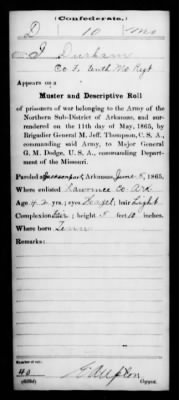 (Confederate.)
D 10 Mo
J Durham
Co F, tenth Mo Regt
Appears on a
Muster and Descriptive Roll
of prisoners of war belonging to the Army of the
Northern Sub-District of Arkansas, and sur-
rendered on the 11th day of May, 1865, by
Brigadier General M. Jeff. Thompson, C. S. A.,
commanding said Army, to Major General
G. M. Dodge, U. S. A., commanding Depart-
ment of the Missouri.
Paroled at Jacksonport, Arkansas, June 5, 1865.
Where enlisted Lawrence Co Ark
Age 42 yrs; eyes Hazel; hair Light
Complexion Fair; height 5 feet 10 inches.
Where born Tenn
Remarks:
Number of roll:
40
(639d) Copyist.